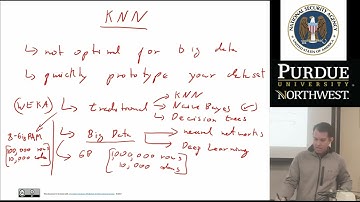 KNN
↳ not optimal for big data
↳ quickly prototype your dataset
WEKA ↳ traditional → KNN
→ Naive Bayes
→ Decision trees
8-Gig RAM
100,000 rows
10,000 colms
↳ Big Data → neural networks
→ Deep Learning
↳ GB
1000,000 rows
10,000 colms
NATIONAL SECURITY AGENCY
UNITED STATES OF AMERICA
PURDUE
UNIVERSITY
NORTHWEST